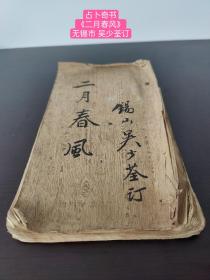 占卜奇书
《二月春风》
无锡市 吴少荃订
二月春風
錫山吳少荃訂